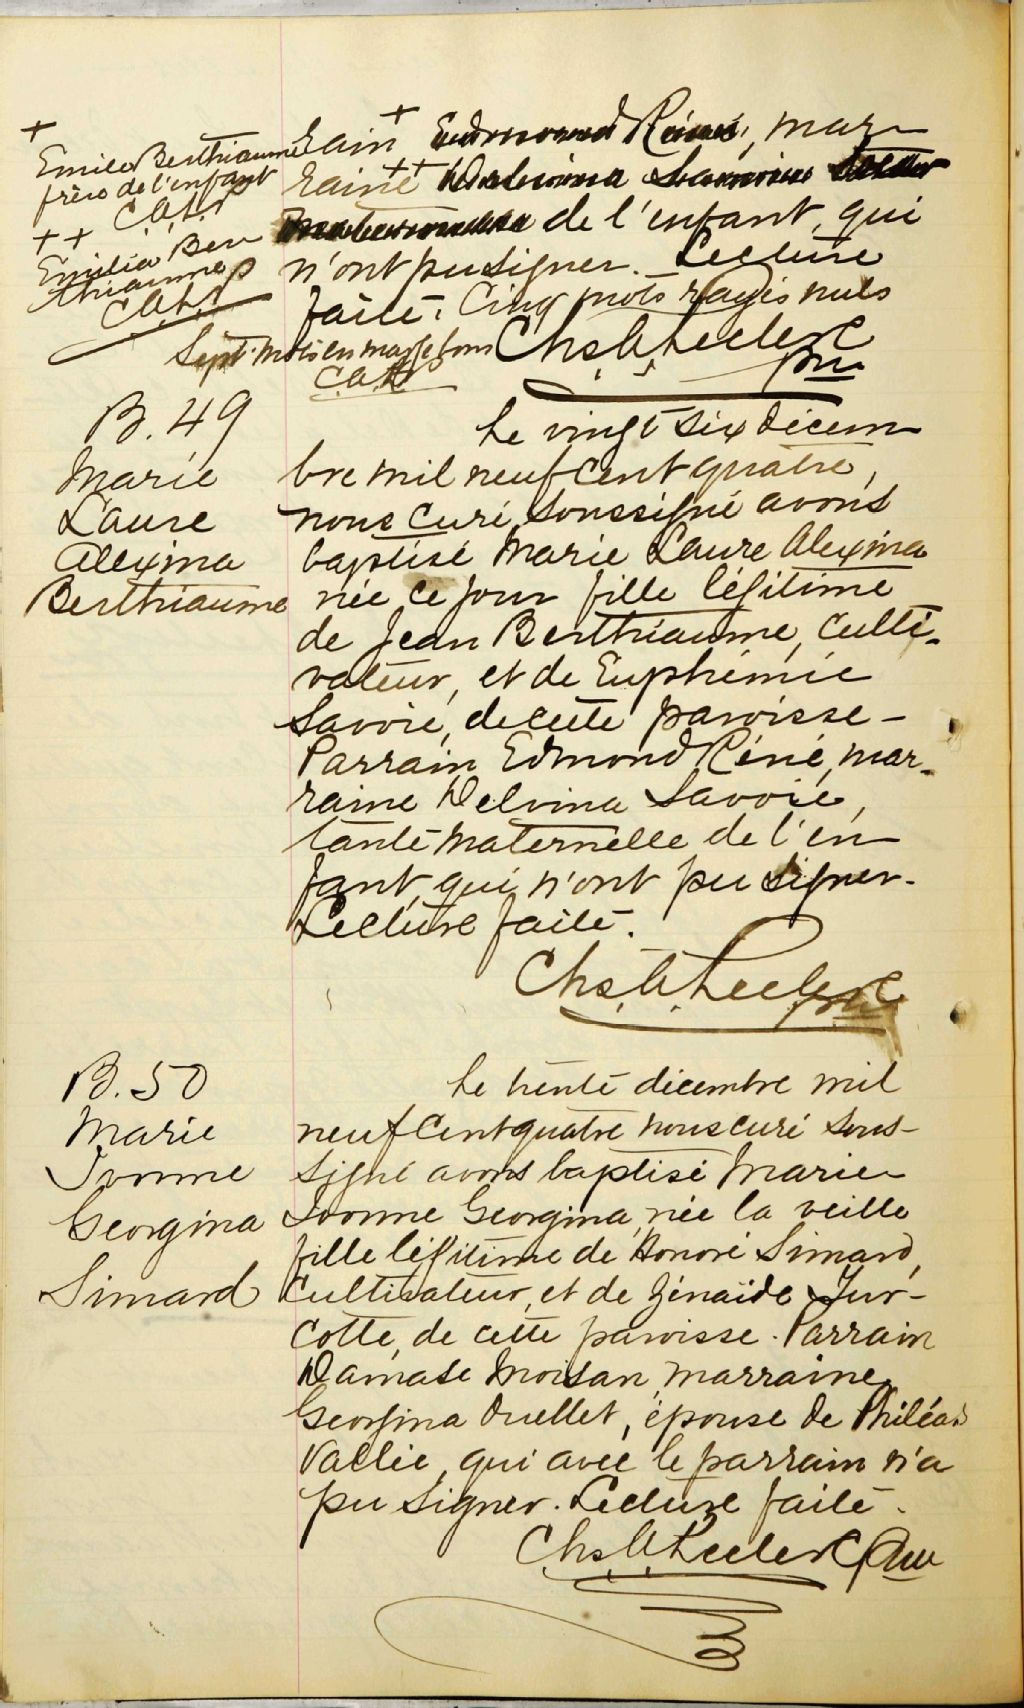 +
Emile Berthiaume
frère de l'enfant
C.A.L. p
++
Emilia Ber
thiaume p
C.A.L.
rain + Edmond Réné, mar
raine ++ Delvina Savoie tante
maternelle de l'enfant, qui
n'ont pu signer. Lecture
faite. Cinq mots rayés nuls
Sept mots en marge bons
C.A.L.
Chs. A. Leclerc
ptre
B. 49
Marie
Laure
Alexina
Berthiaume
Le vingt six décem
bre mil neuf cent quatre,
nous curé soussigné avons
baptisé Marie Laure Alexina
née ce jour fille légitime
de Jean Berthiaume, culti-
vateur, et de Euphémie
Savoie, de cette paroisse -
Parrain Edmond Réné, mar-
raine Delvina Savoie,
tante maternelle de l'en
fant, qui n'ont pu signer.
Lecture faite.
Chs. A. Leclerc
ptre
B. 50
Marie
Ivonne
Georgina
Simard
Le trente décembre mil
neuf cent quatre nous curé sous-
signé avons baptisé Marie
Ivonne Georgina, née la veille
fille légitime de Honoré Simard,
cultivateur, et de Zénaïde Tur-
cotte, de cette paroisse. Parrain
Damase Moisan, marraine
Georgina Ouellet, épouse de Philéas
Vallée, qui avec le parrain n'a
pu signer. Lecture faite.
Chs. A. Leclerc ptre